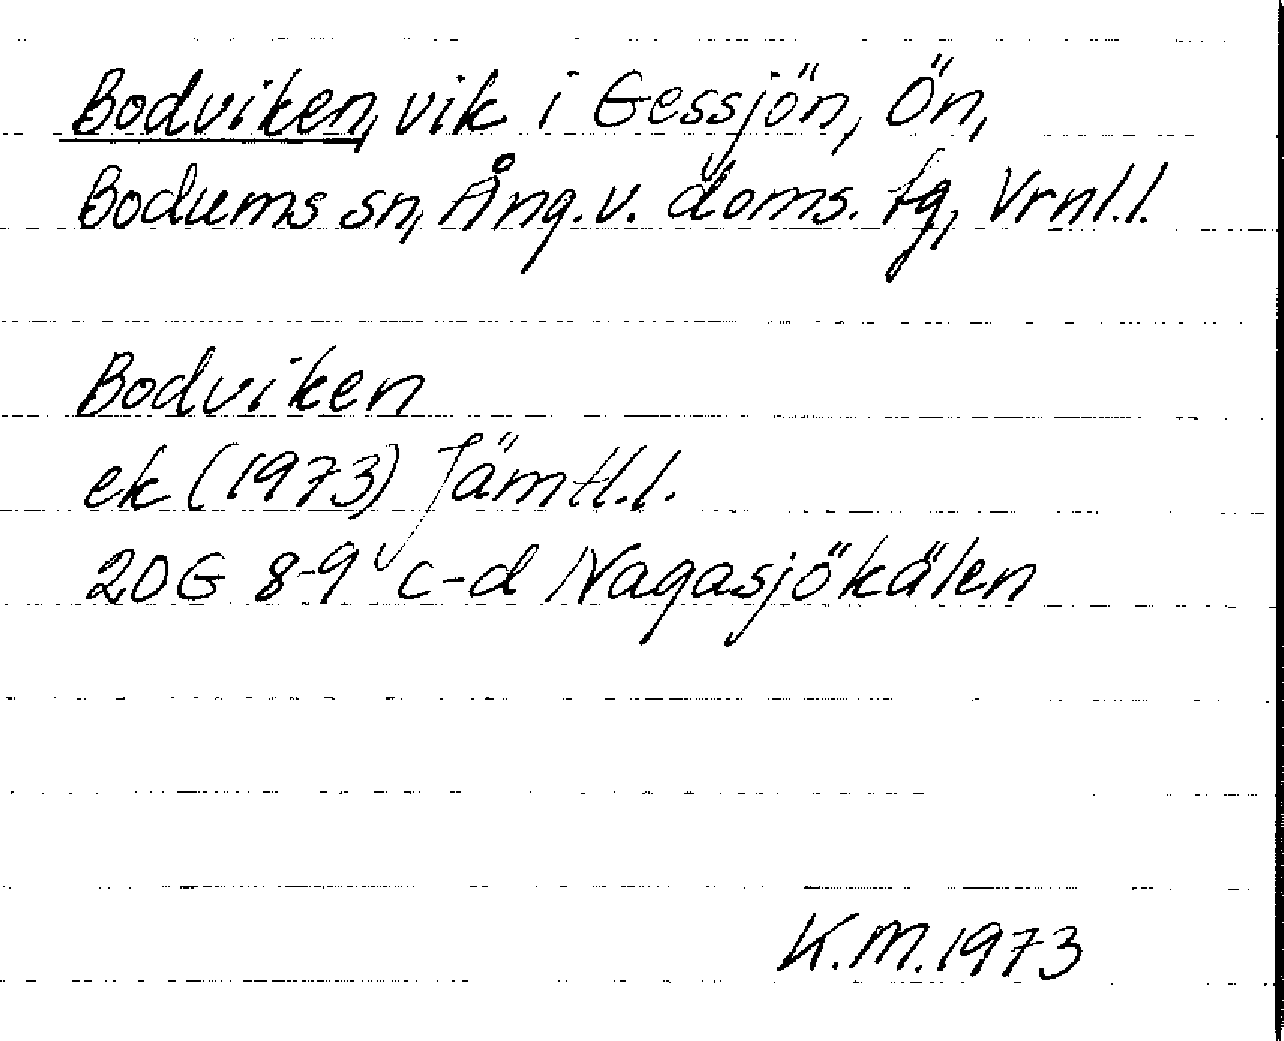 Bodviken, vik i Gessjön, Ön,
Bodums sn, Ång. v. doms. fg, Vrnl.l.
Bodviken
ek (1973) Jämtl.l.
20G 8-9 c-d Nagasjökälen
K.M. 1973